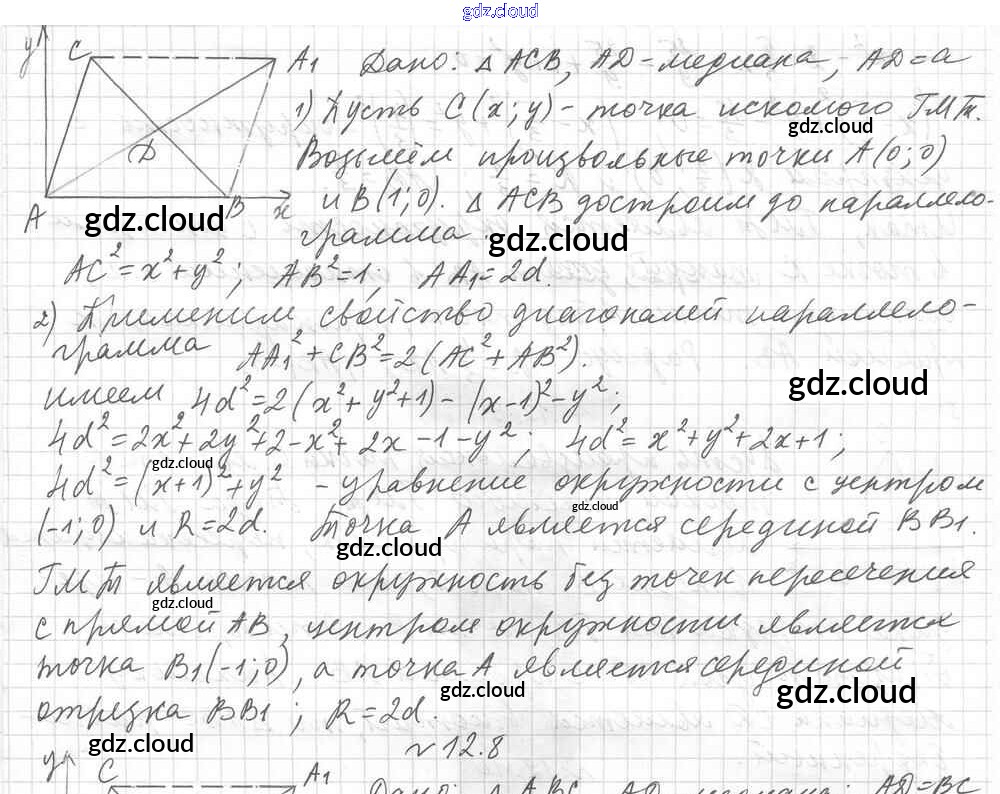 gdz.cloud
y C A1 Дано: △ ACB, AD-медиана, AD=a
1) Пусть C(x; y) - точка искомого ГМТ.
gdz.cloud
D Возьмём произвольные точки A(0; 0)
A B x и B(1; 0). △ ACB достроим до параллело-
gdz.cloud
грамма. gdz.cloud
AC²=x²+y²; AB²=1; AA1=2d.
2) Применим свойство диагоналей параллело-
грамма AA1²+CB²=2(AC²+AB²).
gdz.cloud
имеем 4d²=2(x²+y²+1)-(x-1)²-y²;
4d²=2x²+2y²+2-x²+2x-1-y²; 4d²=x²+y²+2x+1;
gdz.cloud
4d²=(x+1)²+y² - уравнение окружности с центром
gdz.cloud
(-1; 0) и R=2d. Точка A является серединой BB1.
gdz.cloud
ГМТ является окружность без точек пересечения
gdz.cloud
с прямой AB, центром окружности является
точка B1(-1; 0), а точка A является серединой
gdz.cloud gdz.cloud
отрезка BB1; R=2d.
gdz.cloud
№12.8
y C A1 Дано: △ ABC, AD медиана; AD=BC